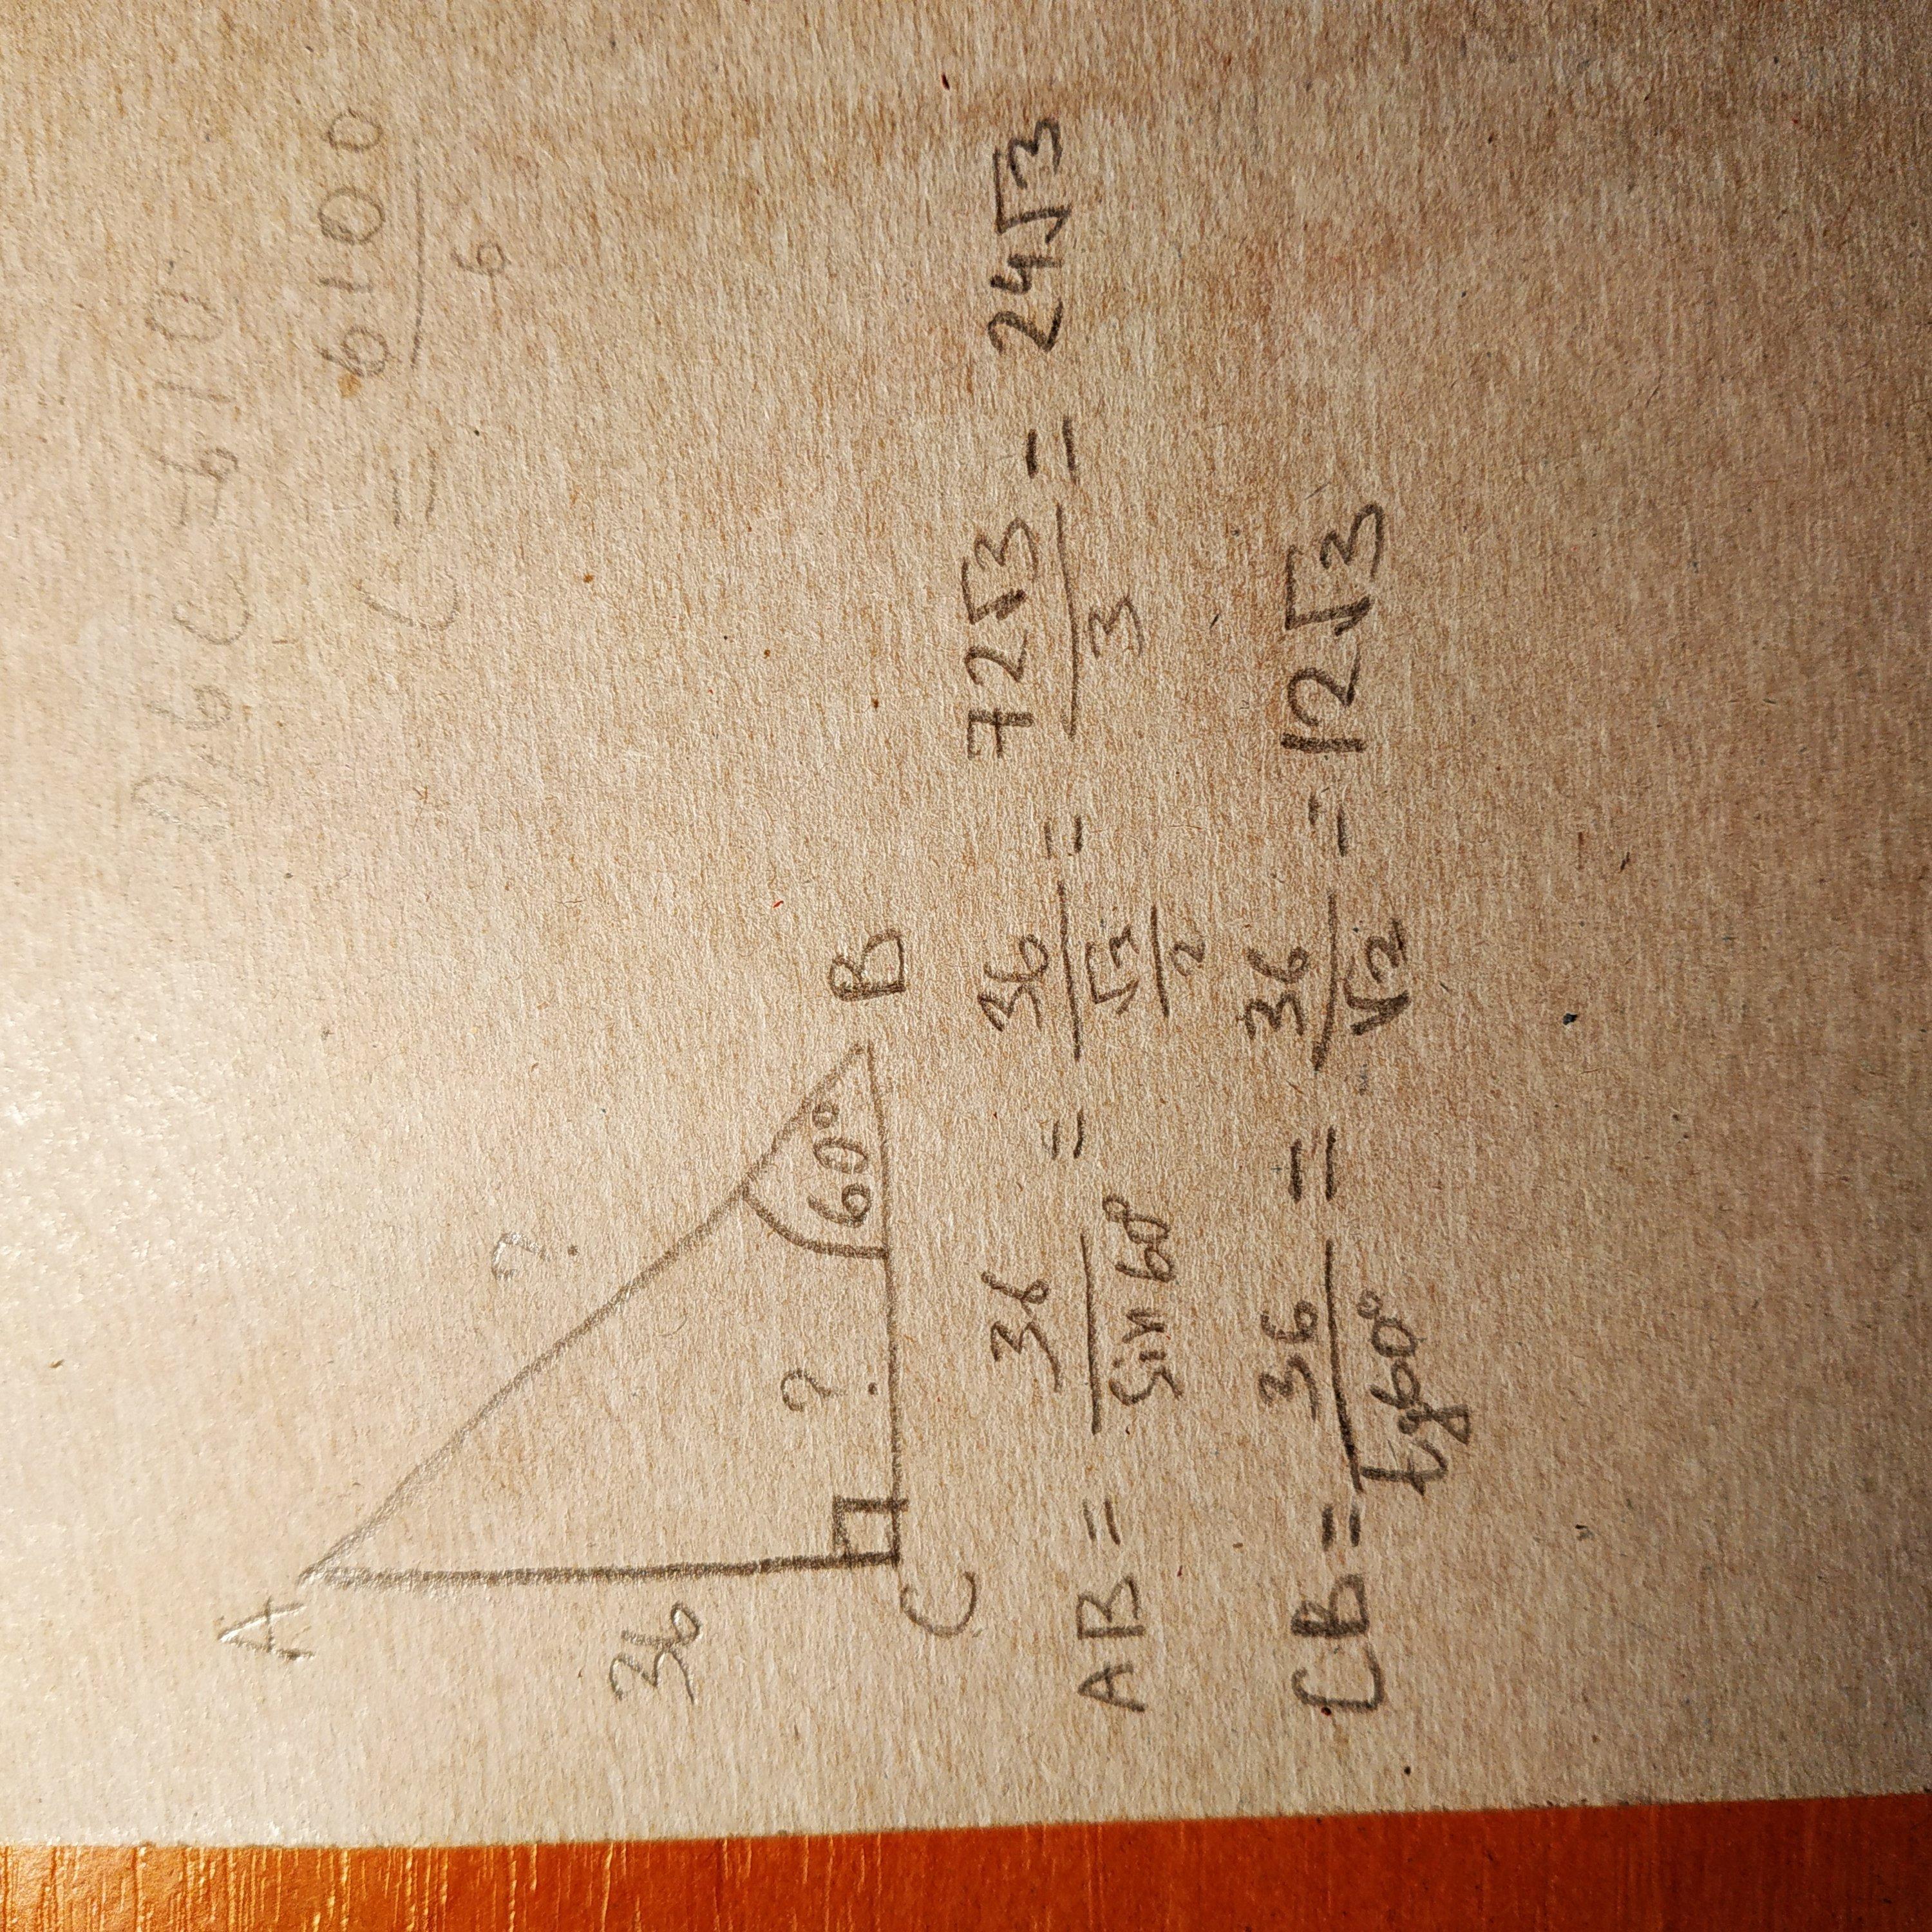 C = 6100/6
A
?
36
?
60°
C B
AB = 36/sin 60° = 36/(√3/2) = 72√3/3 = 24√3
CB = 36/tg60° = 36/√3 = 12√3